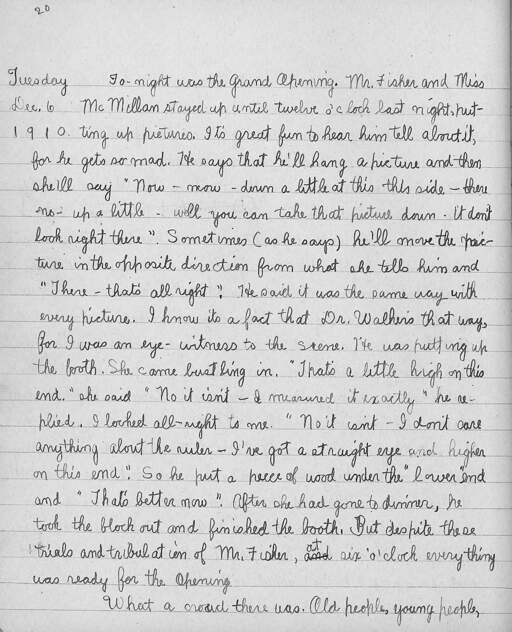 20
Tuesday To-night was the Grand Opening. Mr. Fisher and Miss
Dec. 6 McMillan stayed up until twelve o'clock last night, put-
1910. ting up pictures. Its great fun to hear him tell about it,
for he gets so mad. He says that he'll hang a picture and then
she'll say "Now - now - down a little at this this side - there
no - up a little - well you can take that picture down - it don't
look right there". Sometimes (as he says) he'll move the pic-
ture in the opposite direction from what she tells him and
"There - thats all right". He said it was the same way with
every picture. I know its a fact that Dr. Walkers that way,
for I was an eye-witness to the scene. He was putting up
the booth. She came bustling in. "Thats a little high on this
end." she said "No it isn't - I measured it exactly" he re-
plied. I looked all-right to me. "No it isn't - I don't care
anything about the ruler - I've got a straight eye and higher
on this end". So he put a piece of wood under the "lower" end
and "That's better now". After she had gone to dinner, he
took the block out and finished the booth. But despite these
trials and tribulation of Mr. Fisher, at six 'o'clock everything
was ready for the Opening
What a crowd there was. Old people, young people,